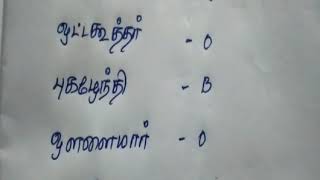 ஒட்டகூத்தர் - O
புகழேந்தி - B
ஔவையார் - O